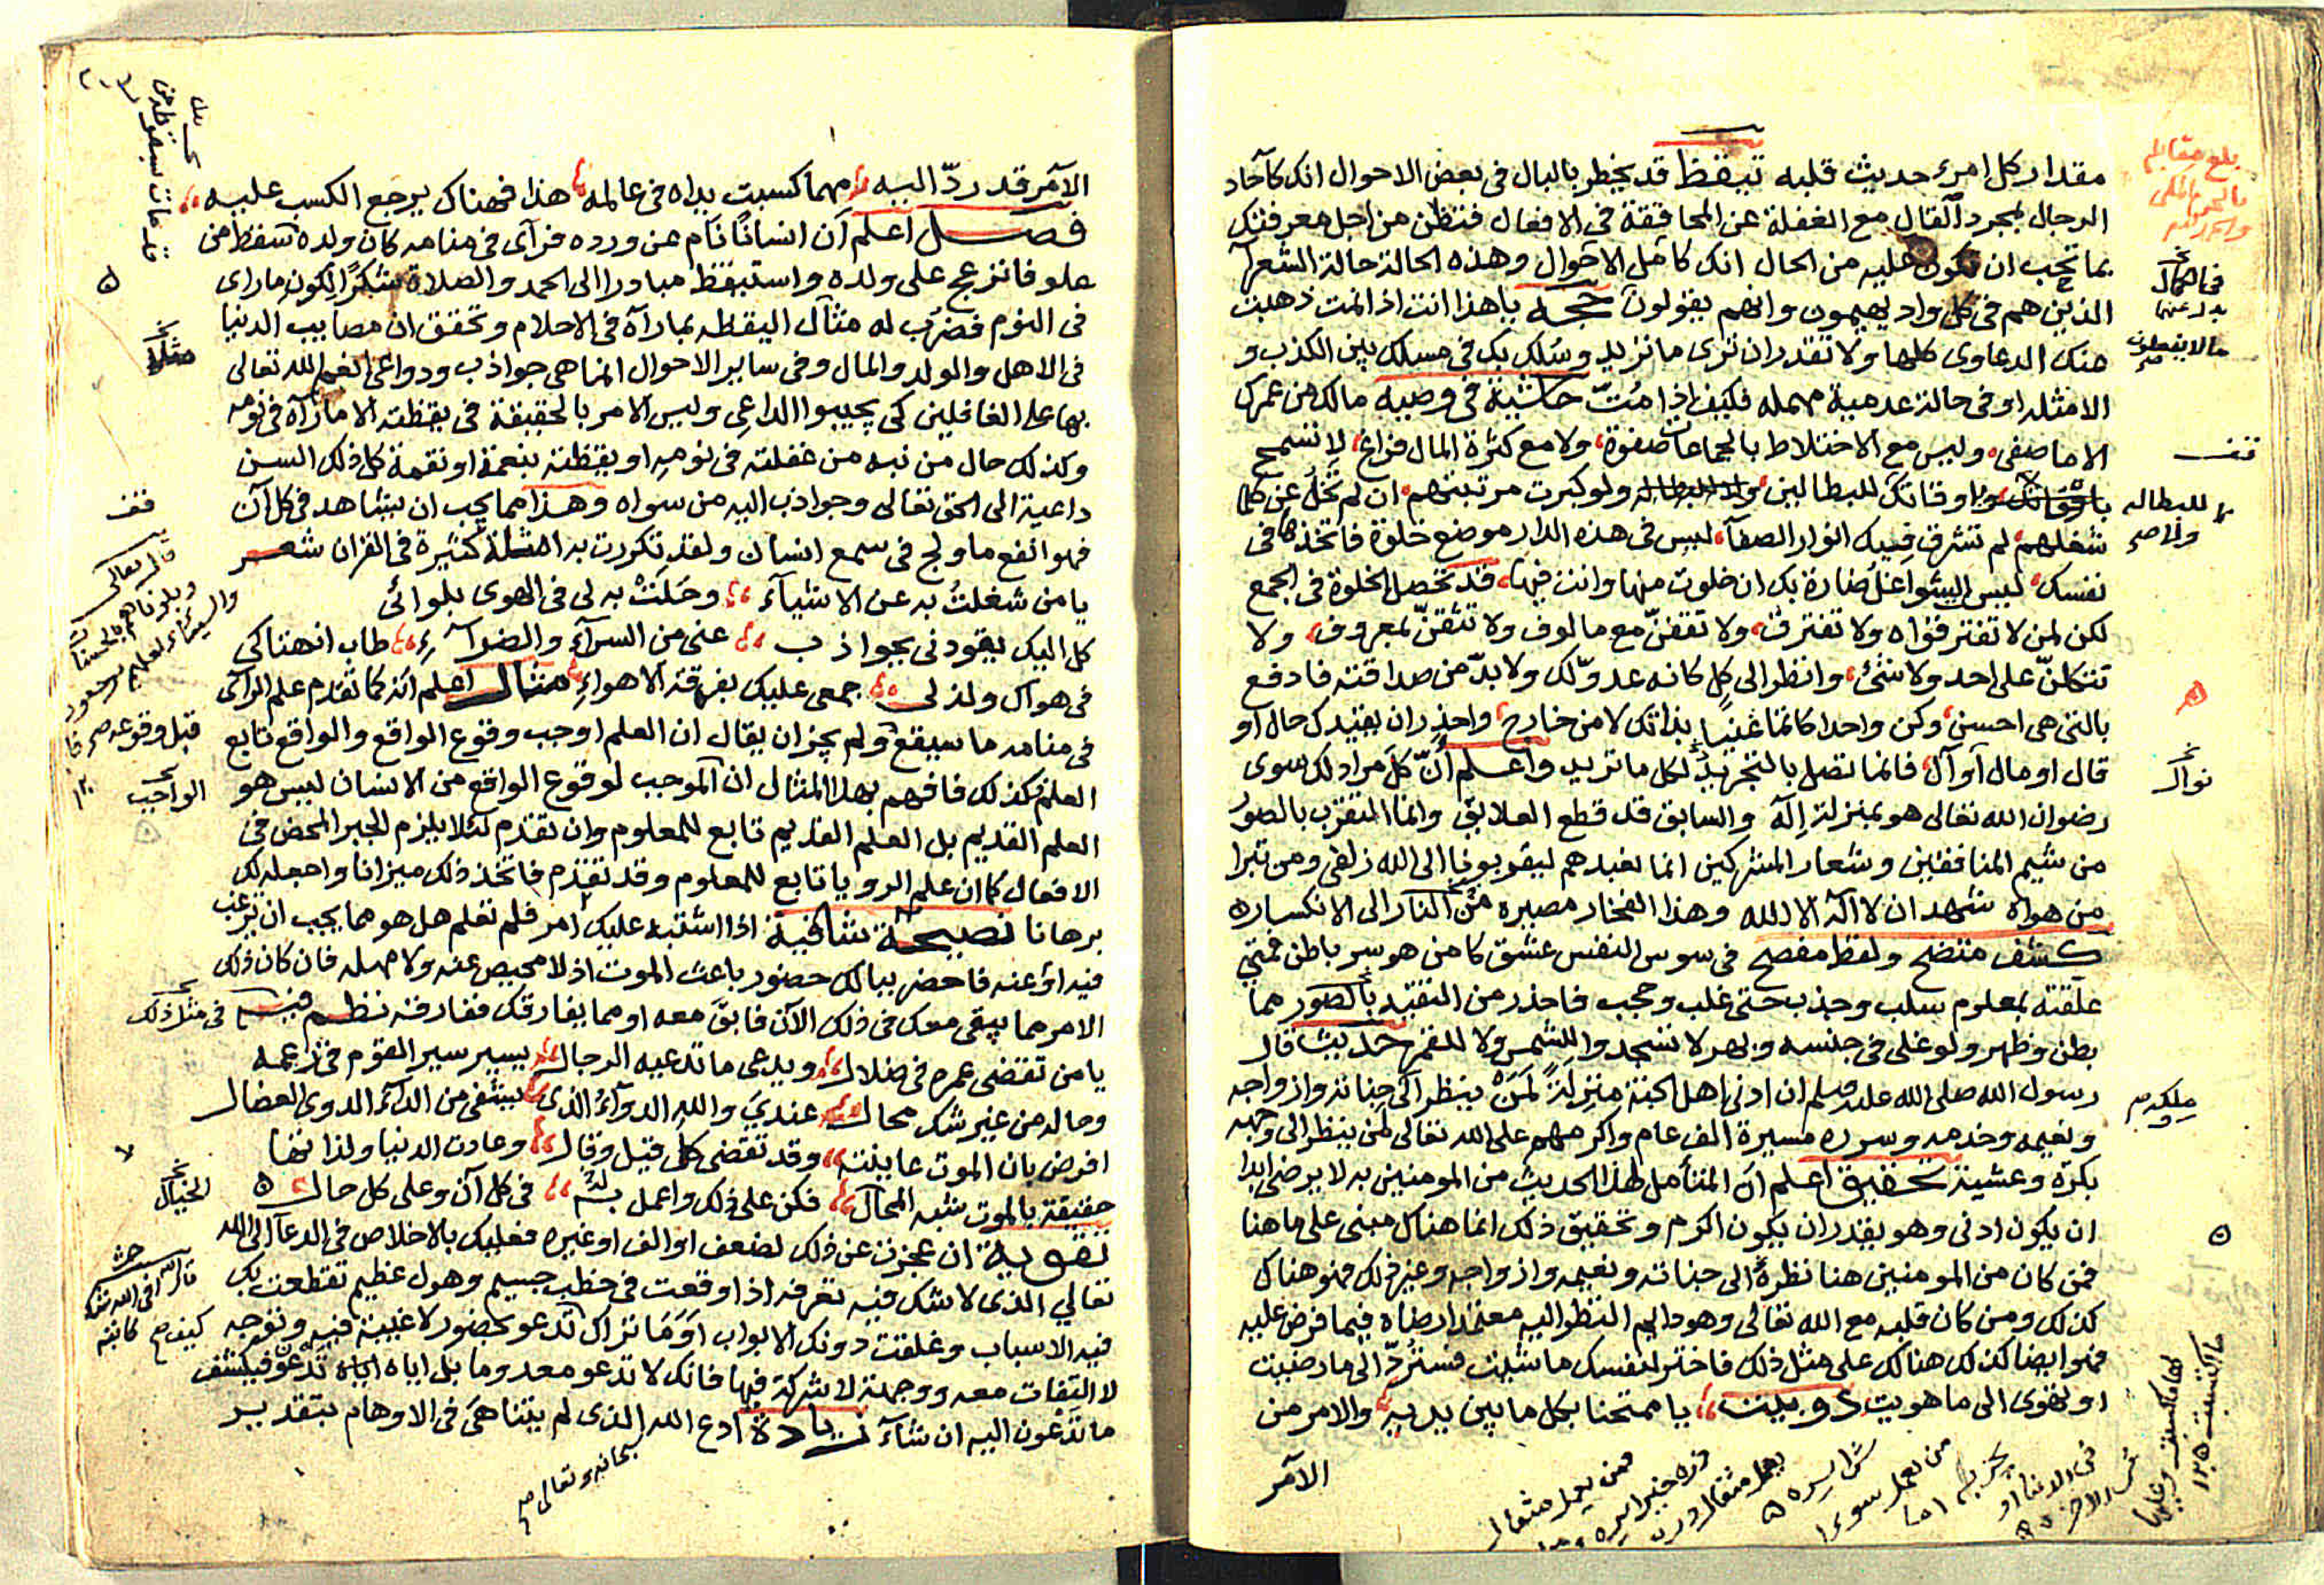 مقدار كل امرء حديث قلبه تيقظ قد يخطر بالبال فى بعض الاحوال انك كآحاد
الرجال بمجرد القال مع الغفلة عن المحاققة فى الافعال فتظن من اجل معرفتك
بما تحب ان تكون عليه من الحال انك كامل الاحوال وهذه الحالة حالة الشعرآ
الذين هم فى كل واد يهيمون وانهم يقولون حجة يا هذا انت اذا نمت ذهبت
منك الدعاوى كلها ولا تقدر ان ترى ما تريد وسلك بك فى مسلك بين الكذب و
الامثله او فى حالة عدمية مهمله فكيف اذا مُتّ حاشية فى وصيه مالك من عمرك
الا ما صفى وليس مع الاختلاط بالجماعات صفوة ولا مع كثرة المال فراغ لا تسمح
باوقاتك للبطالين ولو كبرت مرتبتهم ان لم تخلُ عن كلما
شغلهم لم تشرق فيك انوار الصفآء ليس فى هذه الدار موضع خلوة فاتخذها فى
نفسك ليس الشواغل ضارة بك ان خلوت منها وانت فيها قد تحصل الخلوة فى الجمع
لكن لمن لا تفترقواه ولا تفترق ولا تقفنّ مع مالوف ولا تثقنّ بمعروف ولا
تتكلنّ على احد ولا شئ وانظر الى كل كانه عدوّ لك ولا بدّ من صداقته فادفع
بالتى هى احسن وكن واحدا كاتما غنيا بذاتك لا من خارج واحذر ان يقيدك حال او
قال او مال او آل فانما تصل بالتجريد لكل ما تريد واعلم انّ كل مراد لك سوى
رضوان الله تعالى هو بمنزلة إله والسابق قد قطع العلايق وانما التقرب بالصور
من شيم المنافقين وشعار المشركين انما نعبدهم ليقربونا الى الله زلفى ومن تبرا
من هواه شهد ان لا اله الا الله وهذا الفخار مصيره من النار الى الانكسار
كشف متضح ولفظ مفصح فى سوس النفس عشق كامن هو سر باطن فمتى
علقته بمعلوم سلب وجذب حتى غلب وحجب فاحذر من التقيد بالصور مما
بطن وظهر ولو غلى فى جنسه وبهر لا تسجدوا للشمس ولا للقمر حديث قال
رسول الله صلى الله عليه وسلم ان ادنى اهل الجنة منزلة لمن ينظر الى جنانه وازواجه
ونعيمه وخدمه وسرره مسيرة الف عام واكرمهم على الله تعالى لمن ينظر الى وجهه
بكرة وعشية تحقيق اعلم ان المتأمل لهذا الحديث من المومنين به لا يرضى ابدا
ان يكون ادنى وهو يقدر ان يكون اكرم وتحقيق ذلك انما هناك مبنى على ما هنا
فمن كان من المومنين هنا نظره الى جناته ونعيمه وازواجه وغير ذلك فهو هناك
كذلك ومن كان قلبه مع الله تعالى وهو دايم النظر اليه معتمدا رضاه فيما فرض عليه
فهو ايضا كذلك هنالك على مثل ذلك فاختر لنفسك ما شئت فستردّ الى ما رضيت
او تهوى الى ما هويت دوبيت يا ممتحنا بكل ما بين يديه والامر من
الآمر
الآمر قد ردّ اليه مهما كسبت يداه فى عالمه هذا فهناك يرجع الكسب عليه
فصل اعلم ان انسانا نام عن ورده فرآى فى منامه كان ولده سقط من
علو فانزعج على ولده واستيقظ مبادرا الى الحمد والصلاة شكرا لكون ما راى
فى النوم فضرب له مثال اليقظه بما رآه فى الاحلام وتحقق ان مصايب الدنيا
فى الاهل والولد والمال وفى ساير الاحوال انما هى جواذب ودواعى انعم الله تعالى
بها على الغافلين كى يجيبوا الداعى وليس الامر بالحقيقة فى يقظته الا ما رآه فى نومه
وكذلك حال من نبه من غفلته فى نومه او يقظته بنعمة او نقمة كل ذلك السن
داعية الى الحق تعالى وجواذب اليه من سواه وهذا مما يجب ان يشاهد فى كل آن
فهو انفع ما ولج فى سمع انسان ولقد تكررت به امثلة كثيرة فى القران شعر
يا من شغلتُ به عن الاشيآء وحَلَتْ به لى فى الهوى بلوائى
كل اليك يقودنى بجواذب عنى من السرآء والضرآء طاب انهتاكى
فى هواك ولذ لى جمعى عليك بفرقة الاهواء مثال اعلم انه كما تقدم علم الرآى
فى منامه ما سيقع ولم يجز ان يقال ان العلم اوجب وقوع الواقع والواقع تابع
العلم فكذلك فافهم بهذا المثال ان الموجب لوقوع الواقع من الانسان ليس هو
العلم القديم بل العلم القديم تابع للمعلوم وان تقدم لئلا يلزم الجبر المحض فى
الافعال كما ان علم الرويا تابع للمعلوم وقد تقدم فاتخذ ذلك ميزانا واجعله لك
برهانا نصيحة شافية اذا اشتبه عليك امر فلم تعلم هل هو مما يجب ان ترغب
فيه او عنه فاحضر ببالك حضور باعث الموت اذ لا محيص عنه ولا مهله فان كان ذلك
الامر مما يبقى معك فى ذلك الآن فابقَ معه او مما يفارقك ففارقه نظم
يا من تقضى عمره فى ضلال ويدعى ما تدعيه الرجال يسير سير القوم فى زعمه
وماله من غير شك محال عندى والله الدوآء الذى يشفى من الدآء الدوى العضال
افرض بان الموت عاينته وقد تقضى كل قيل وقال وعادت الدنيا ولذاتها
حقيقة بالموت شبه المحال فكن على ذلك واعمل به فى كل آن وعلى كل حال
تقوية ان عجزت عن ذلك لضعف او الف او غيره فعليك بالاخلاص فى الدعآ الى الله
تعالى الذى لا شك فيه تعرفه اذا وقعت فى خطب جسيم وهول عظيم تقطعت بك
فيه الاسباب وغلقت دونك الابواب اوما تراك تدعو بحضور لا غيبة فيه وتوجه
لا التفات معه ووجهة لا شركة فيها فانك لا تدعو معه وما بل اياه تدعون فيكشف
ما تدعون اليه ان شآء زيادة ادع الله الذى لم يتناهى فى الاوهام بتقدير
سبحانه وتعالى